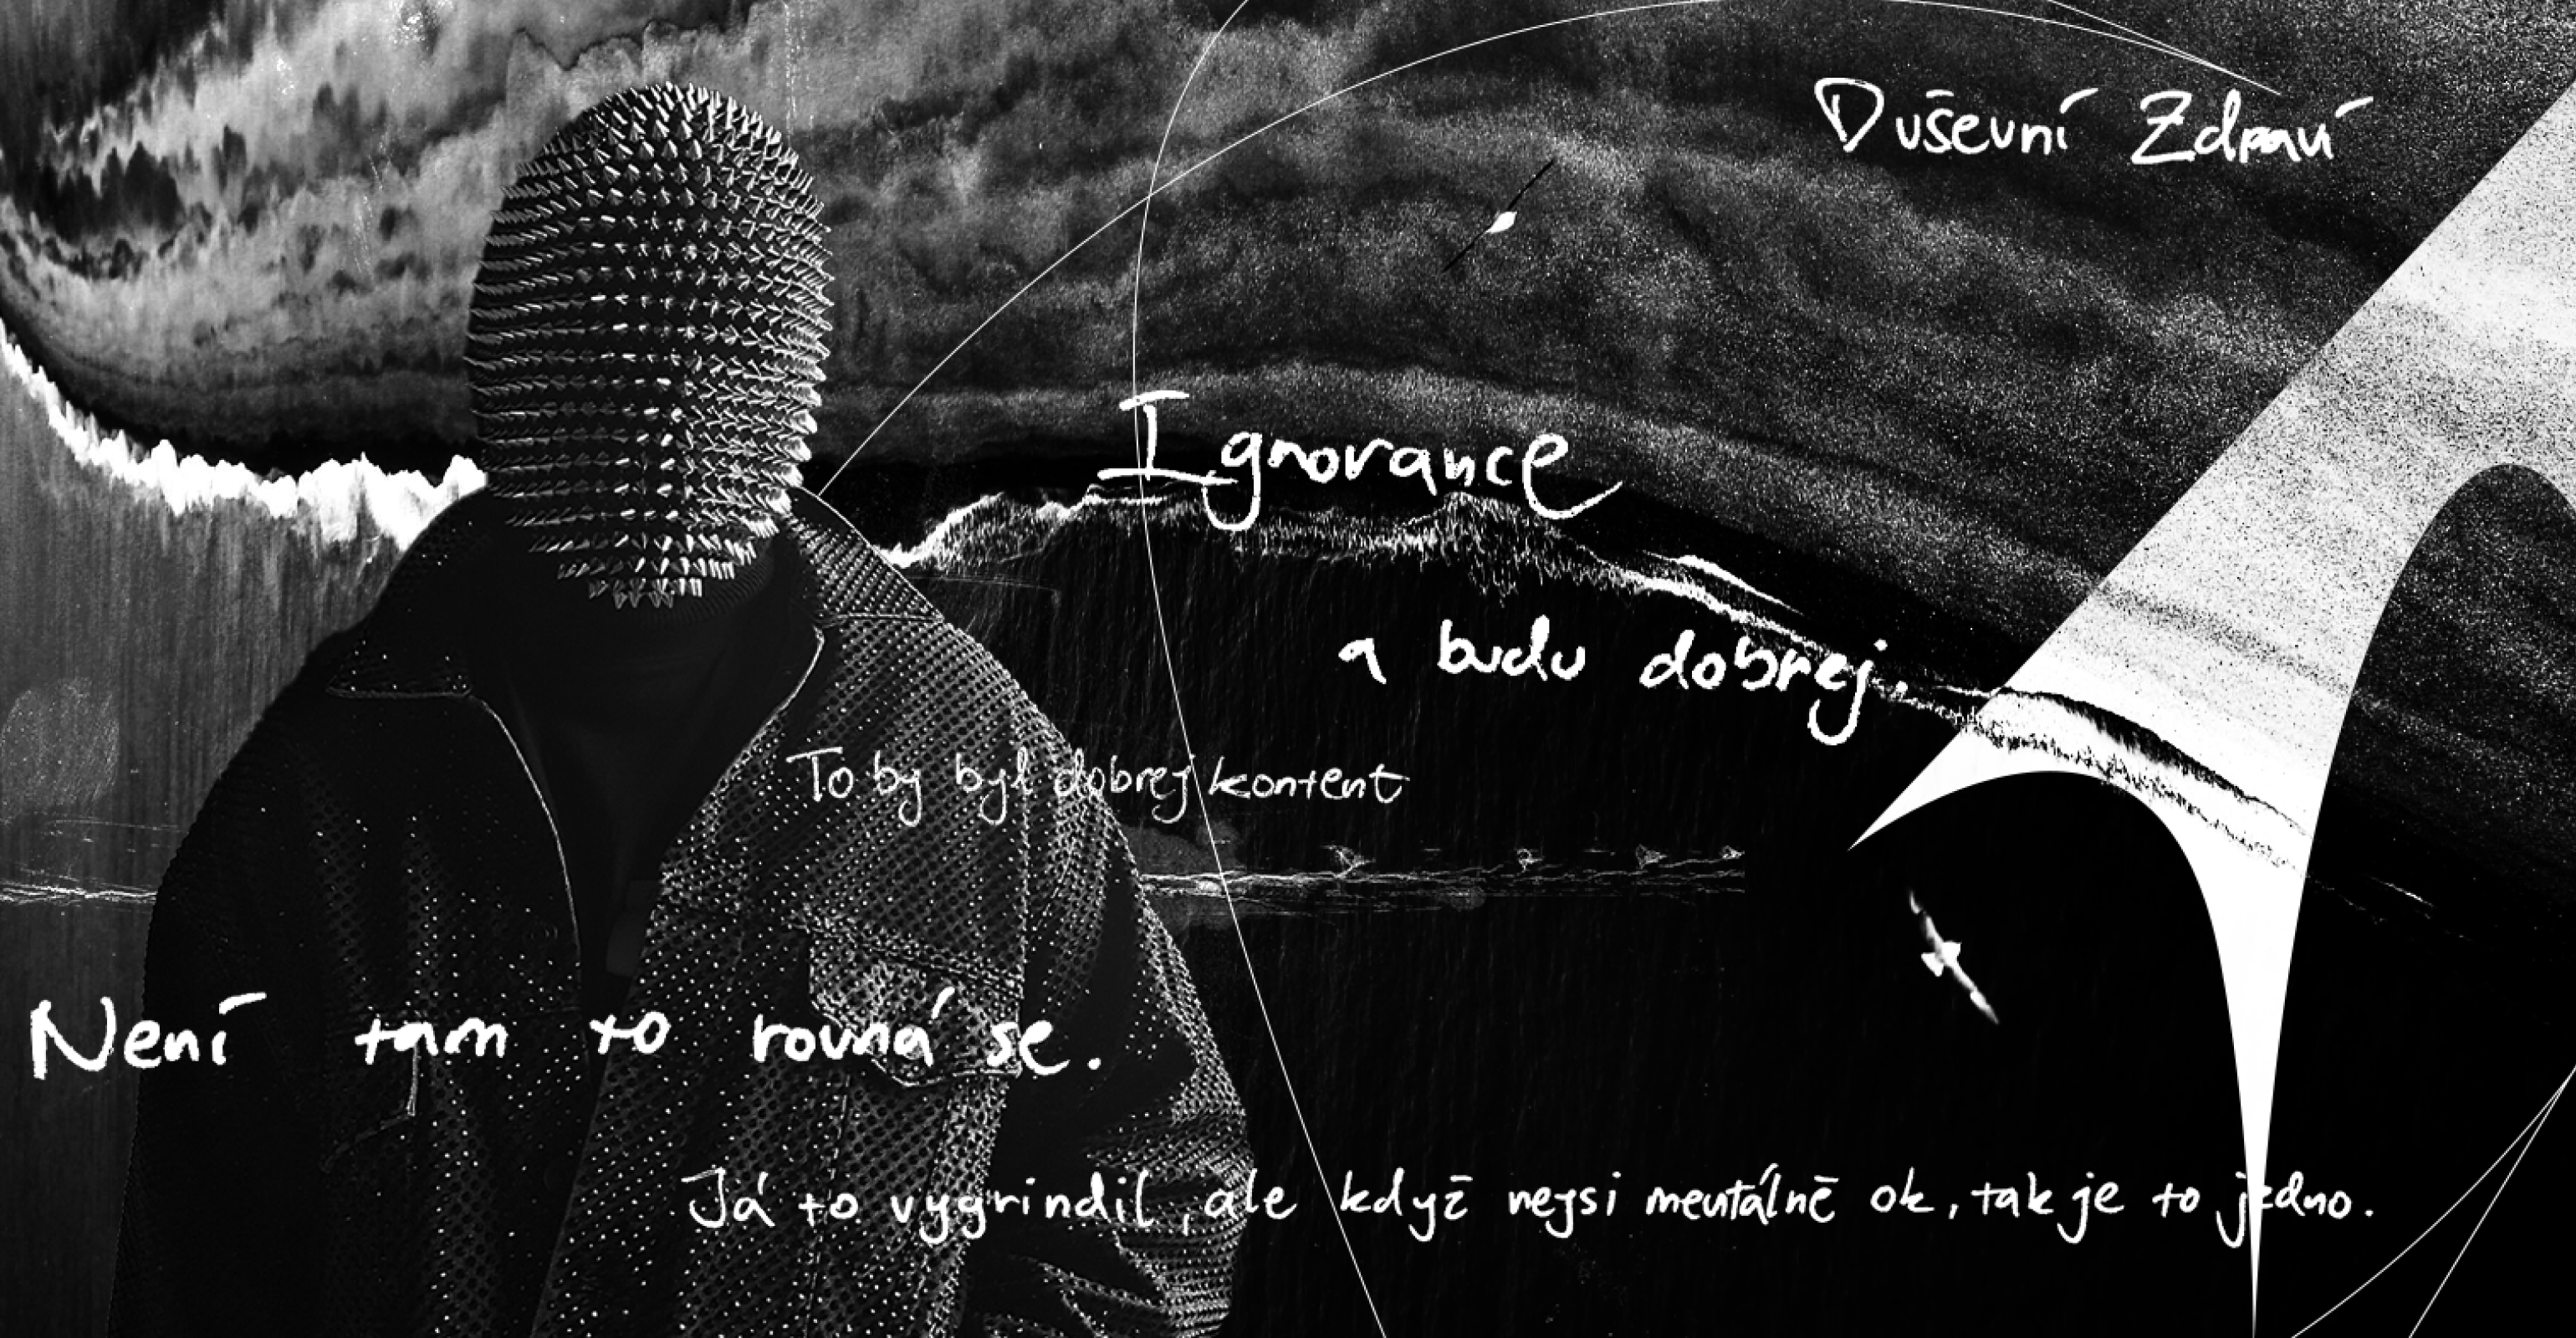 Duševní Zdraví
Ignorance
a budu dobrej.
To by byl dobrej kontent
Není tam to rovná se.
Já to vygrindil, ale když nejsi mentálně ok, tak je to jedno.